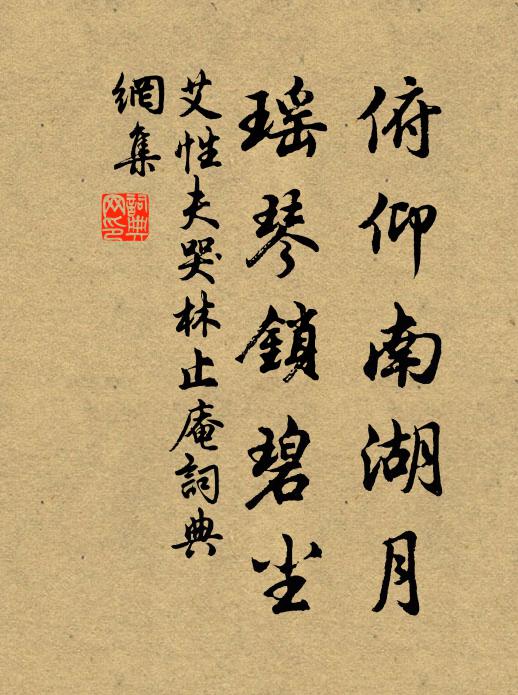 俯仰南湖月
瑶琴鎖碧尘
艾性夫哭林止庵詞典
網集
詞典
网印